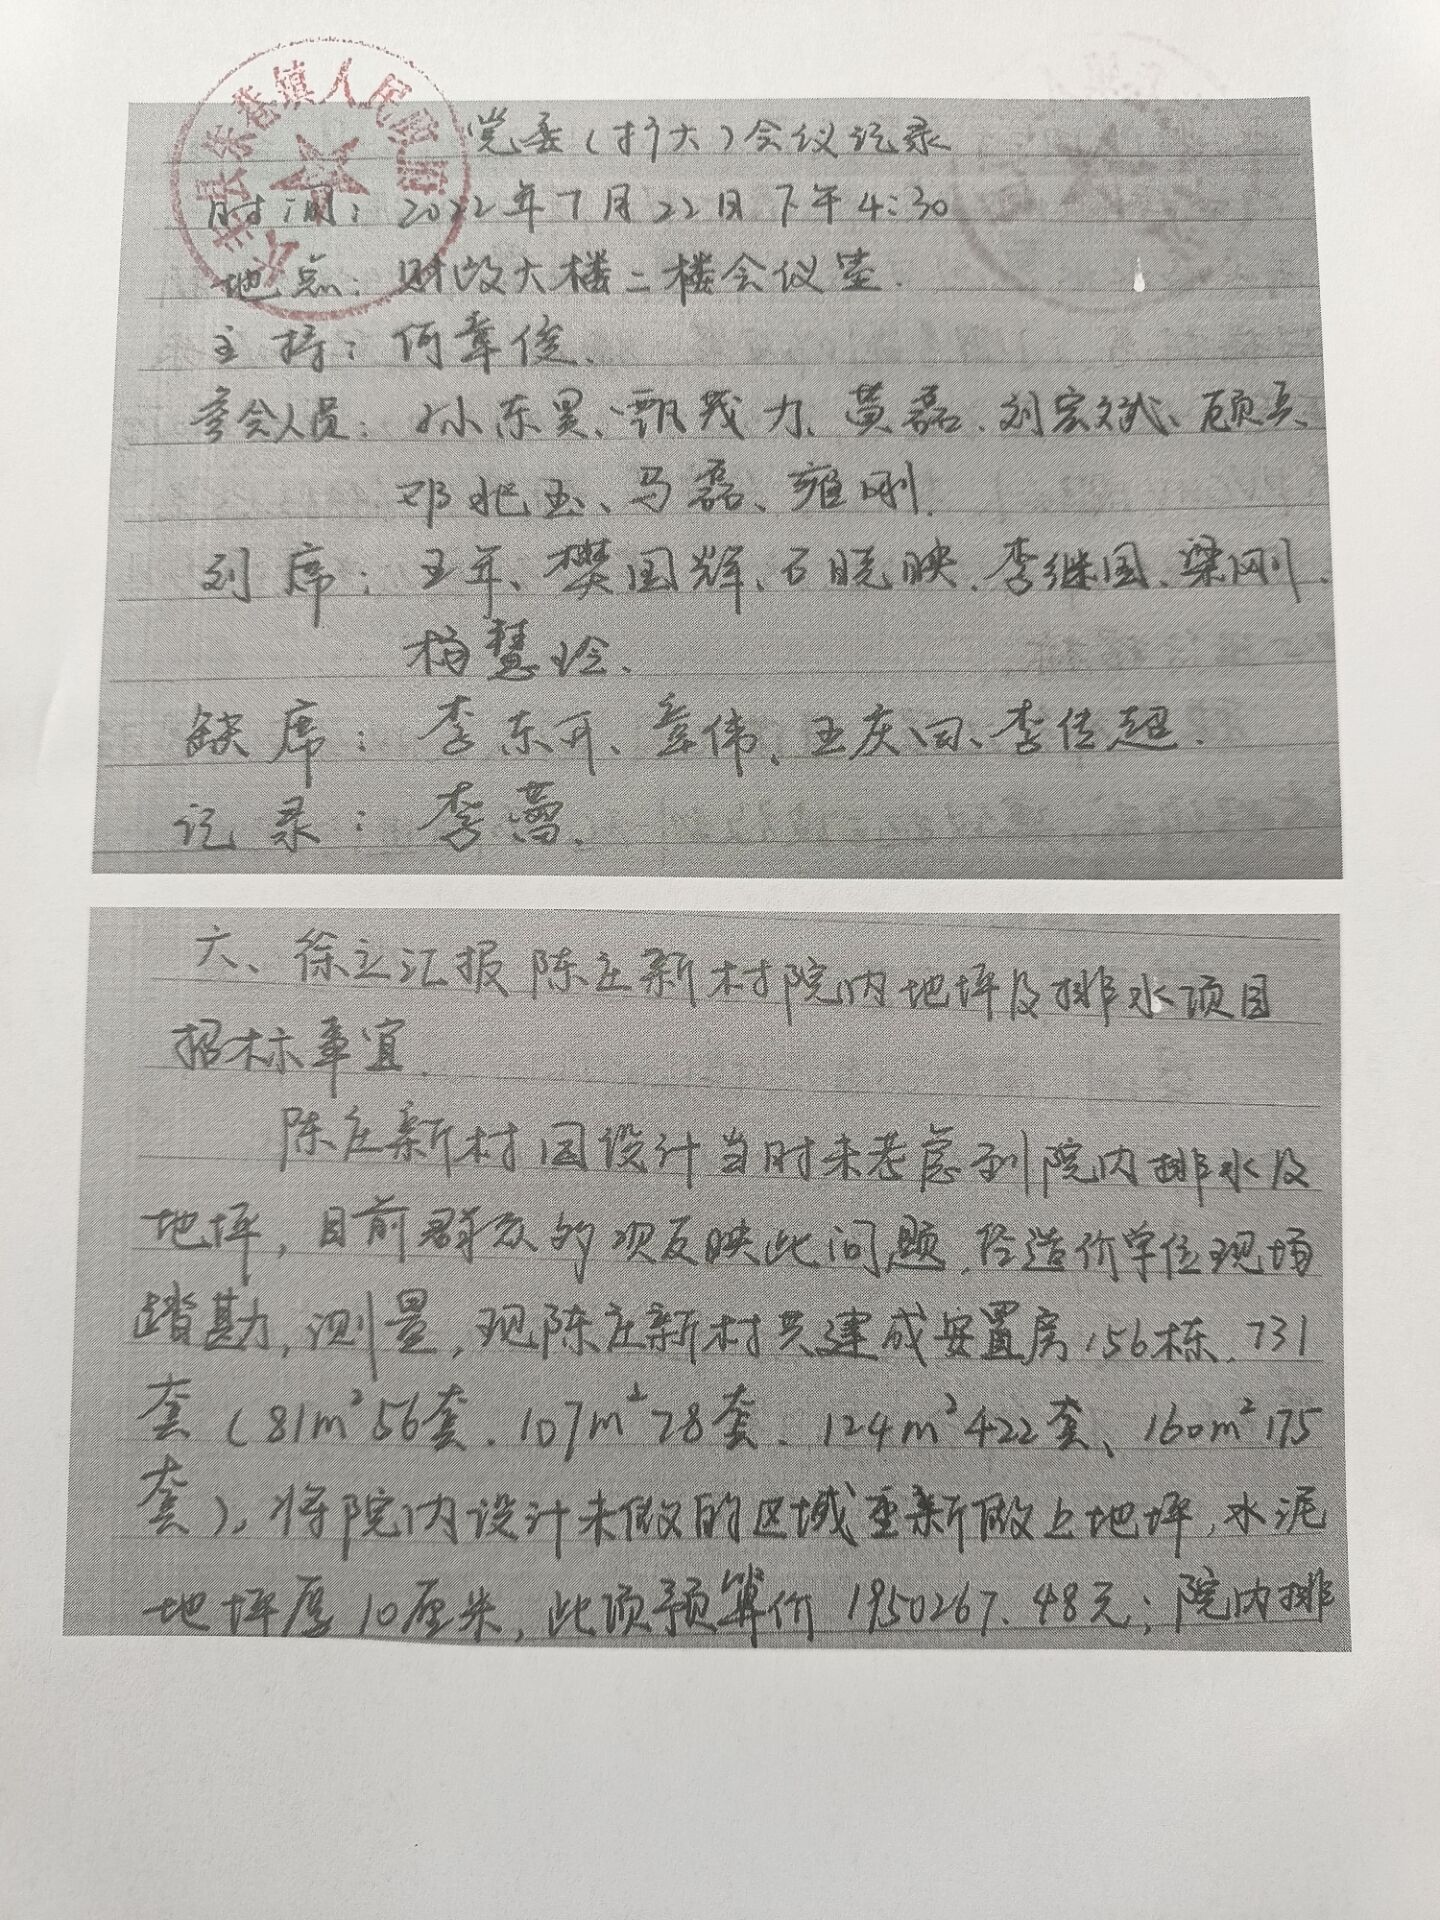 县东巷镇人民政府
党委(扩大)会议记录
时间:2022年7月22日下午4:30
地点:财政大楼二楼会议室.
主持:何章俊.
参会人员:孙东昊、甄茂力、黄磊、刘宏斌、顾兵、
邓兆玉、马磊、雍刚.
列席:王军、樊国辉、石晓映、李继国、梁刚、
杨慧玲.
缺席:李东开、章伟、王庆国、李传超.
记录:李蕾.
六、徐立汇报陈庄新村院内地坪及排水项目
招标事宜.
陈庄新村因设计当时未考虑到院内排水及
地坪,目前群众的次反映此问题,经造价单位现场
踏勘,测量,现陈庄新村共建成安置房156栋、731
套(81m²56套、107m²78套、124m²422套、160m²175
套)。将院内设计未做的区域重新做上地坪,水泥
地坪厚10厘米,此项预算价1950267.48元;院内排